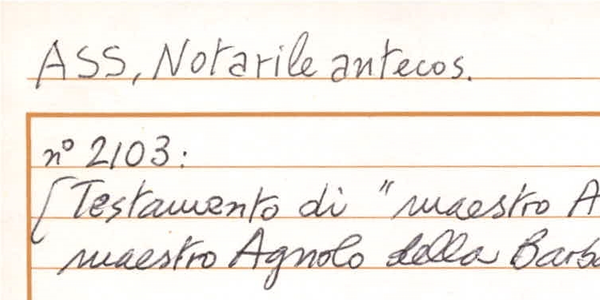 ASS, Notarile antecos.
n° 2103:
[Testamento di "maestro A
maestro Agnolo della Barba